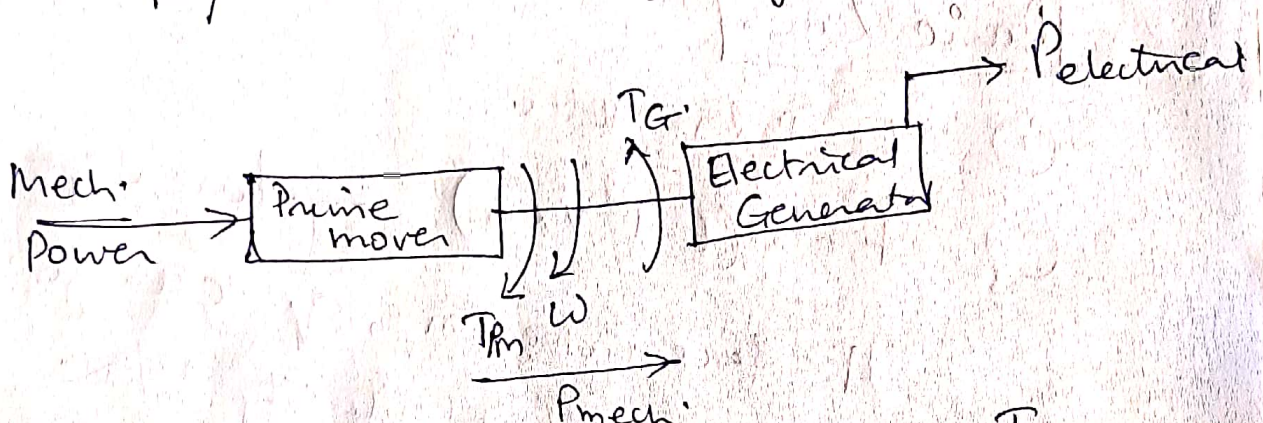 Pelectrical
TG.
Mech.
Power
Prime
mover
Electrical
Generator
TPm
ω
Pmech.
T